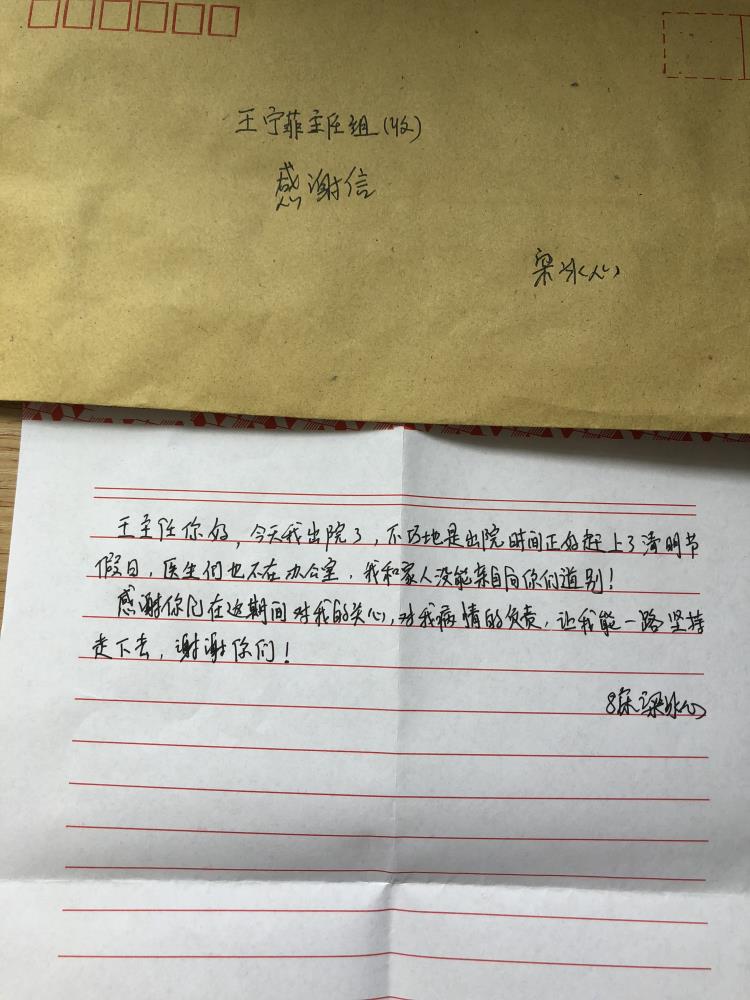 王宁菲主任组(收)
感谢信
梁冰心
王主任你好，今天我出院了，不巧地是出院时间正好赶上了清明节
假日，医生们也不在办公室，我和家人没能亲自向你们道别！
感谢你们在这期间对我的关心，对我病情的负责，让我能一路坚持
走下去，谢谢你们！
8床梁冰心